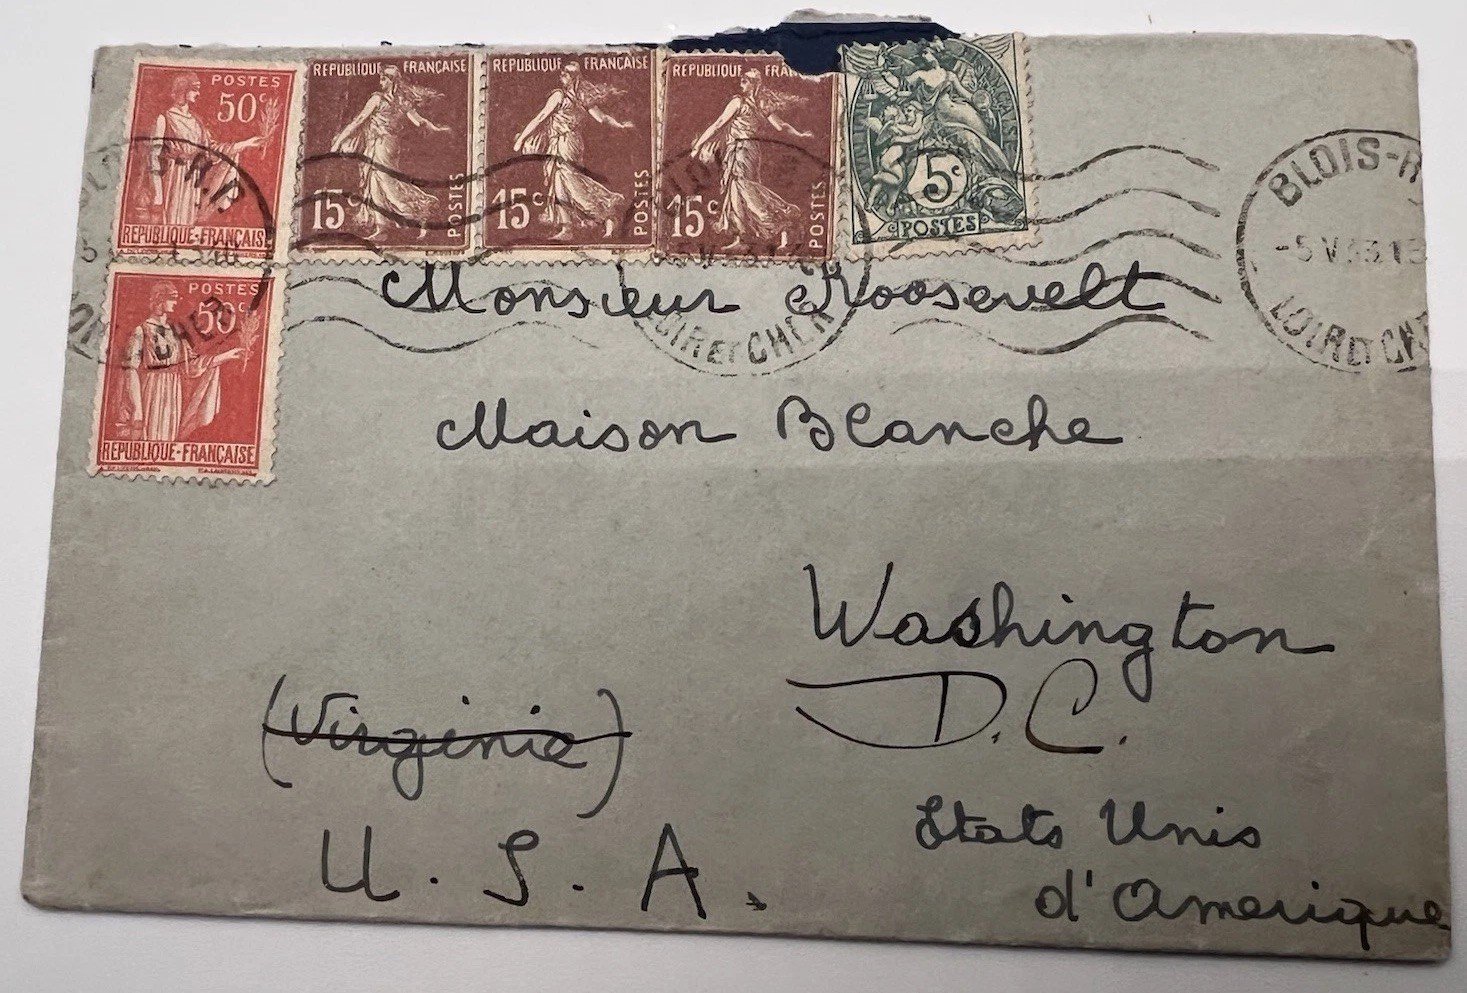 POSTES
50c
REPUBLIQUE-FRANÇAISE
POSTES
50c
REPUBLIQUE-FRANÇAISE
REPUBLIQUE FRANÇAISE
15c
POSTES
REPUBLIQUE FRANÇAISE
15c
POSTES
REPUBLIQUE FRA
15c
POSTES
5c
POSTES
BLOIS-R
-5 V 33 13
LOIR ET CHER
Monsieur Roosevelt
Maison Blanche
Washington
D.C.
(Virginie)
U.S.A.
Etats Unis
d'Amerique